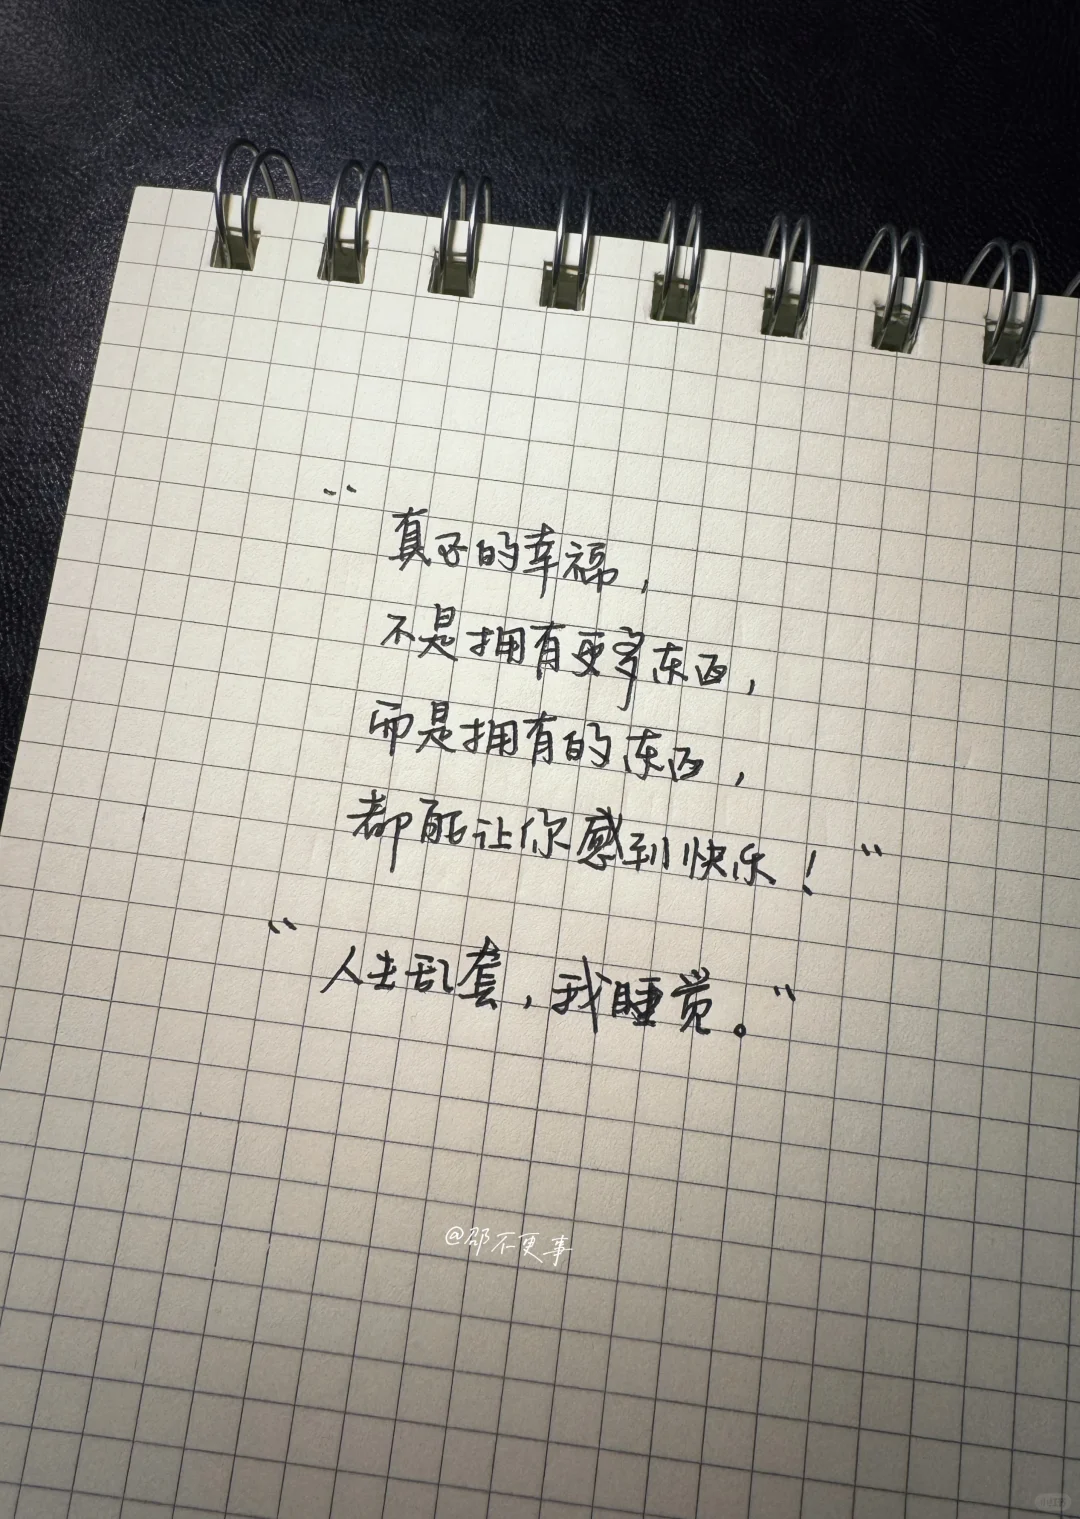 “真正的幸福，
不是拥有更多东西，
而是拥有的东西，
都能让你感到快乐！”
“人生乱套，我睡觉。”
@邵不更事
小红书